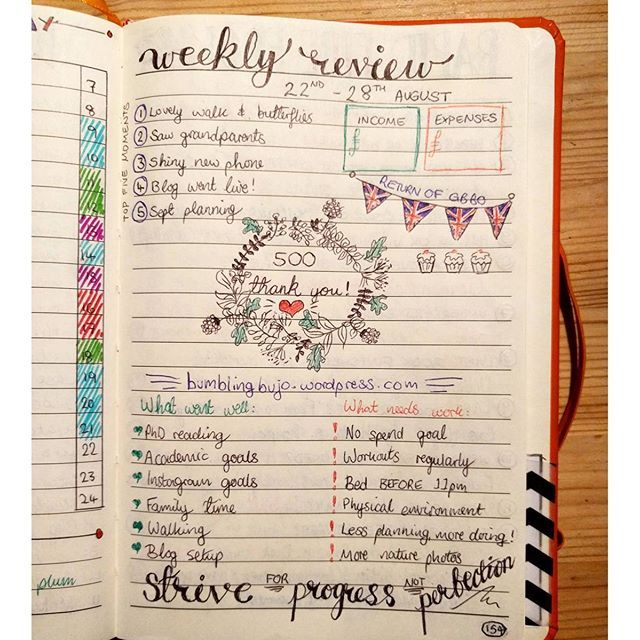 weekly review
22ND - 28TH AUGUST
TOP FIVE MOMENTS
1 Lovely walk & butterflies
2 Saw grandparents
3 Shiny new phone
4 Blog went live!
5 Sept planning
INCOME
£
EXPENSES
£
RETURN OF GBBO
500
thank you!
bumblingbujo.wordpress.com
What went well:
PhD reading
Academic goals
Instagram goals
Family time
Walking
Blog setup
What needs work:
! No spend goal
! Workouts regularly
! Bed BEFORE 11pm
! Physical environment
! Less planning, more doing!
! More nature photos
Strive FOR progress NOT perfection
154
7
8
9
10
11
12
13
14
15
16
17
18
19
20
21
22
23
24
plum